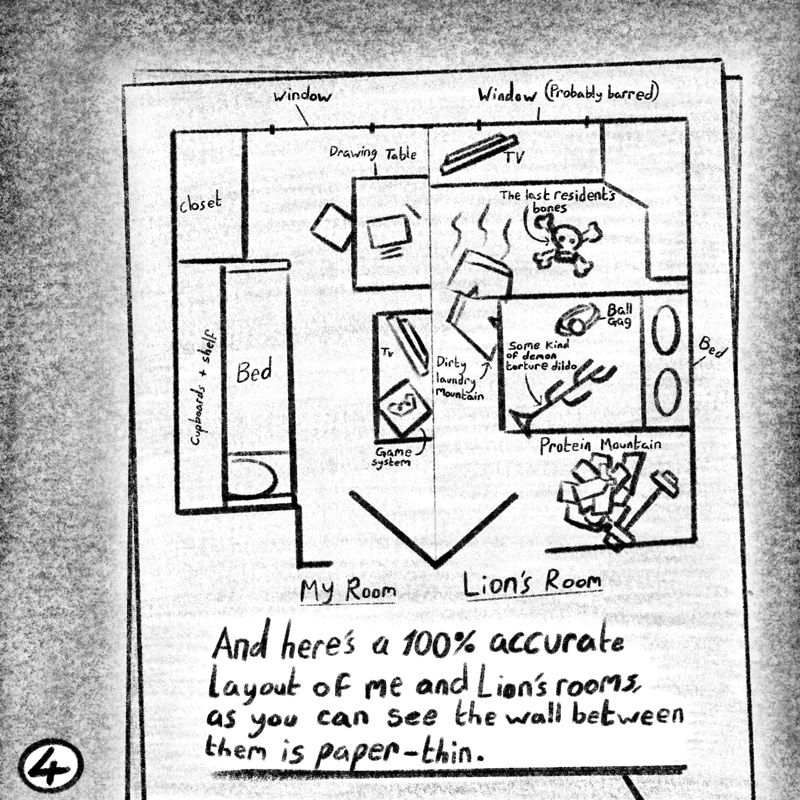 Window
Window (Probably barred)
Closet
Drawing Table
TV
The last resident's
bones
Cupboards + shelf
Bed
TV
Game
system
Dirty
laundry
Mountain
Ball
Gag
Some kind
of demon
torture dildo
Bed
Protein Mountain
My Room
Lion's Room
And here's a 100% accurate
layout of me and Lion's rooms,
as you can see the wall between
them is paper-thin.
4